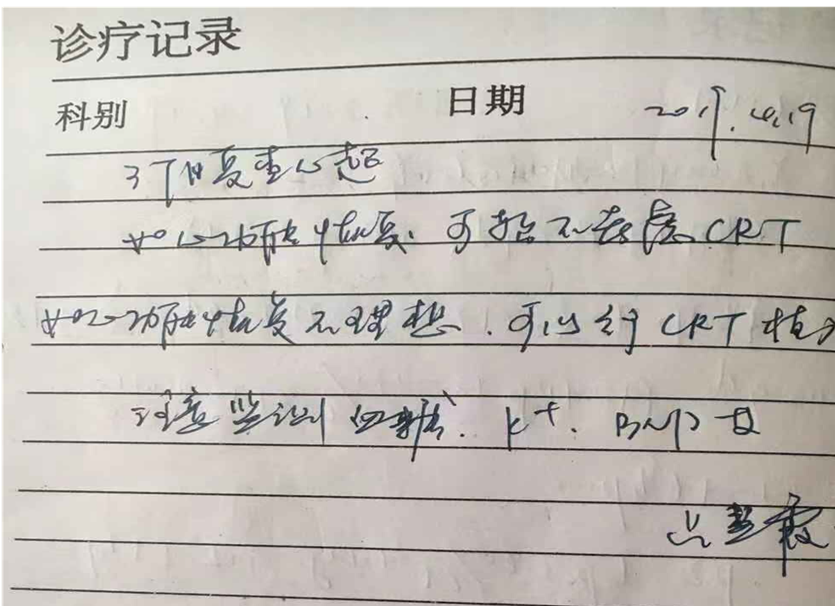 诊疗记录
科别 日期 2019.4.19
3个月复查心超
如心功能恢复. 可暂不考虑CRT
如心功能恢复不理想. 可以行CRT植入
注意监测血糖. K+. BNP